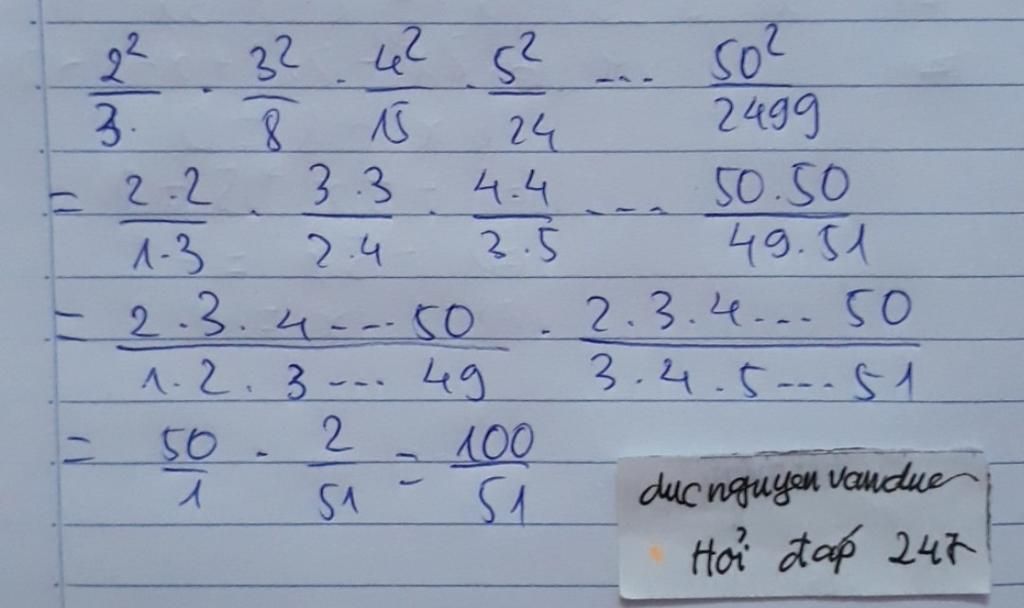 2²/3. . 3²/8 . 4²/15 . 5²/24 ... 50²/2499
= 2.2/1.3 . 3.3/2.4 . 4.4/3.5 ... 50.50/49.51
= 2.3.4...50/1.2.3...49 . 2.3.4...50/3.4.5...51
= 50/1 . 2/51 = 100/51
ducnguyenvanduc
Hỏi đáp 247